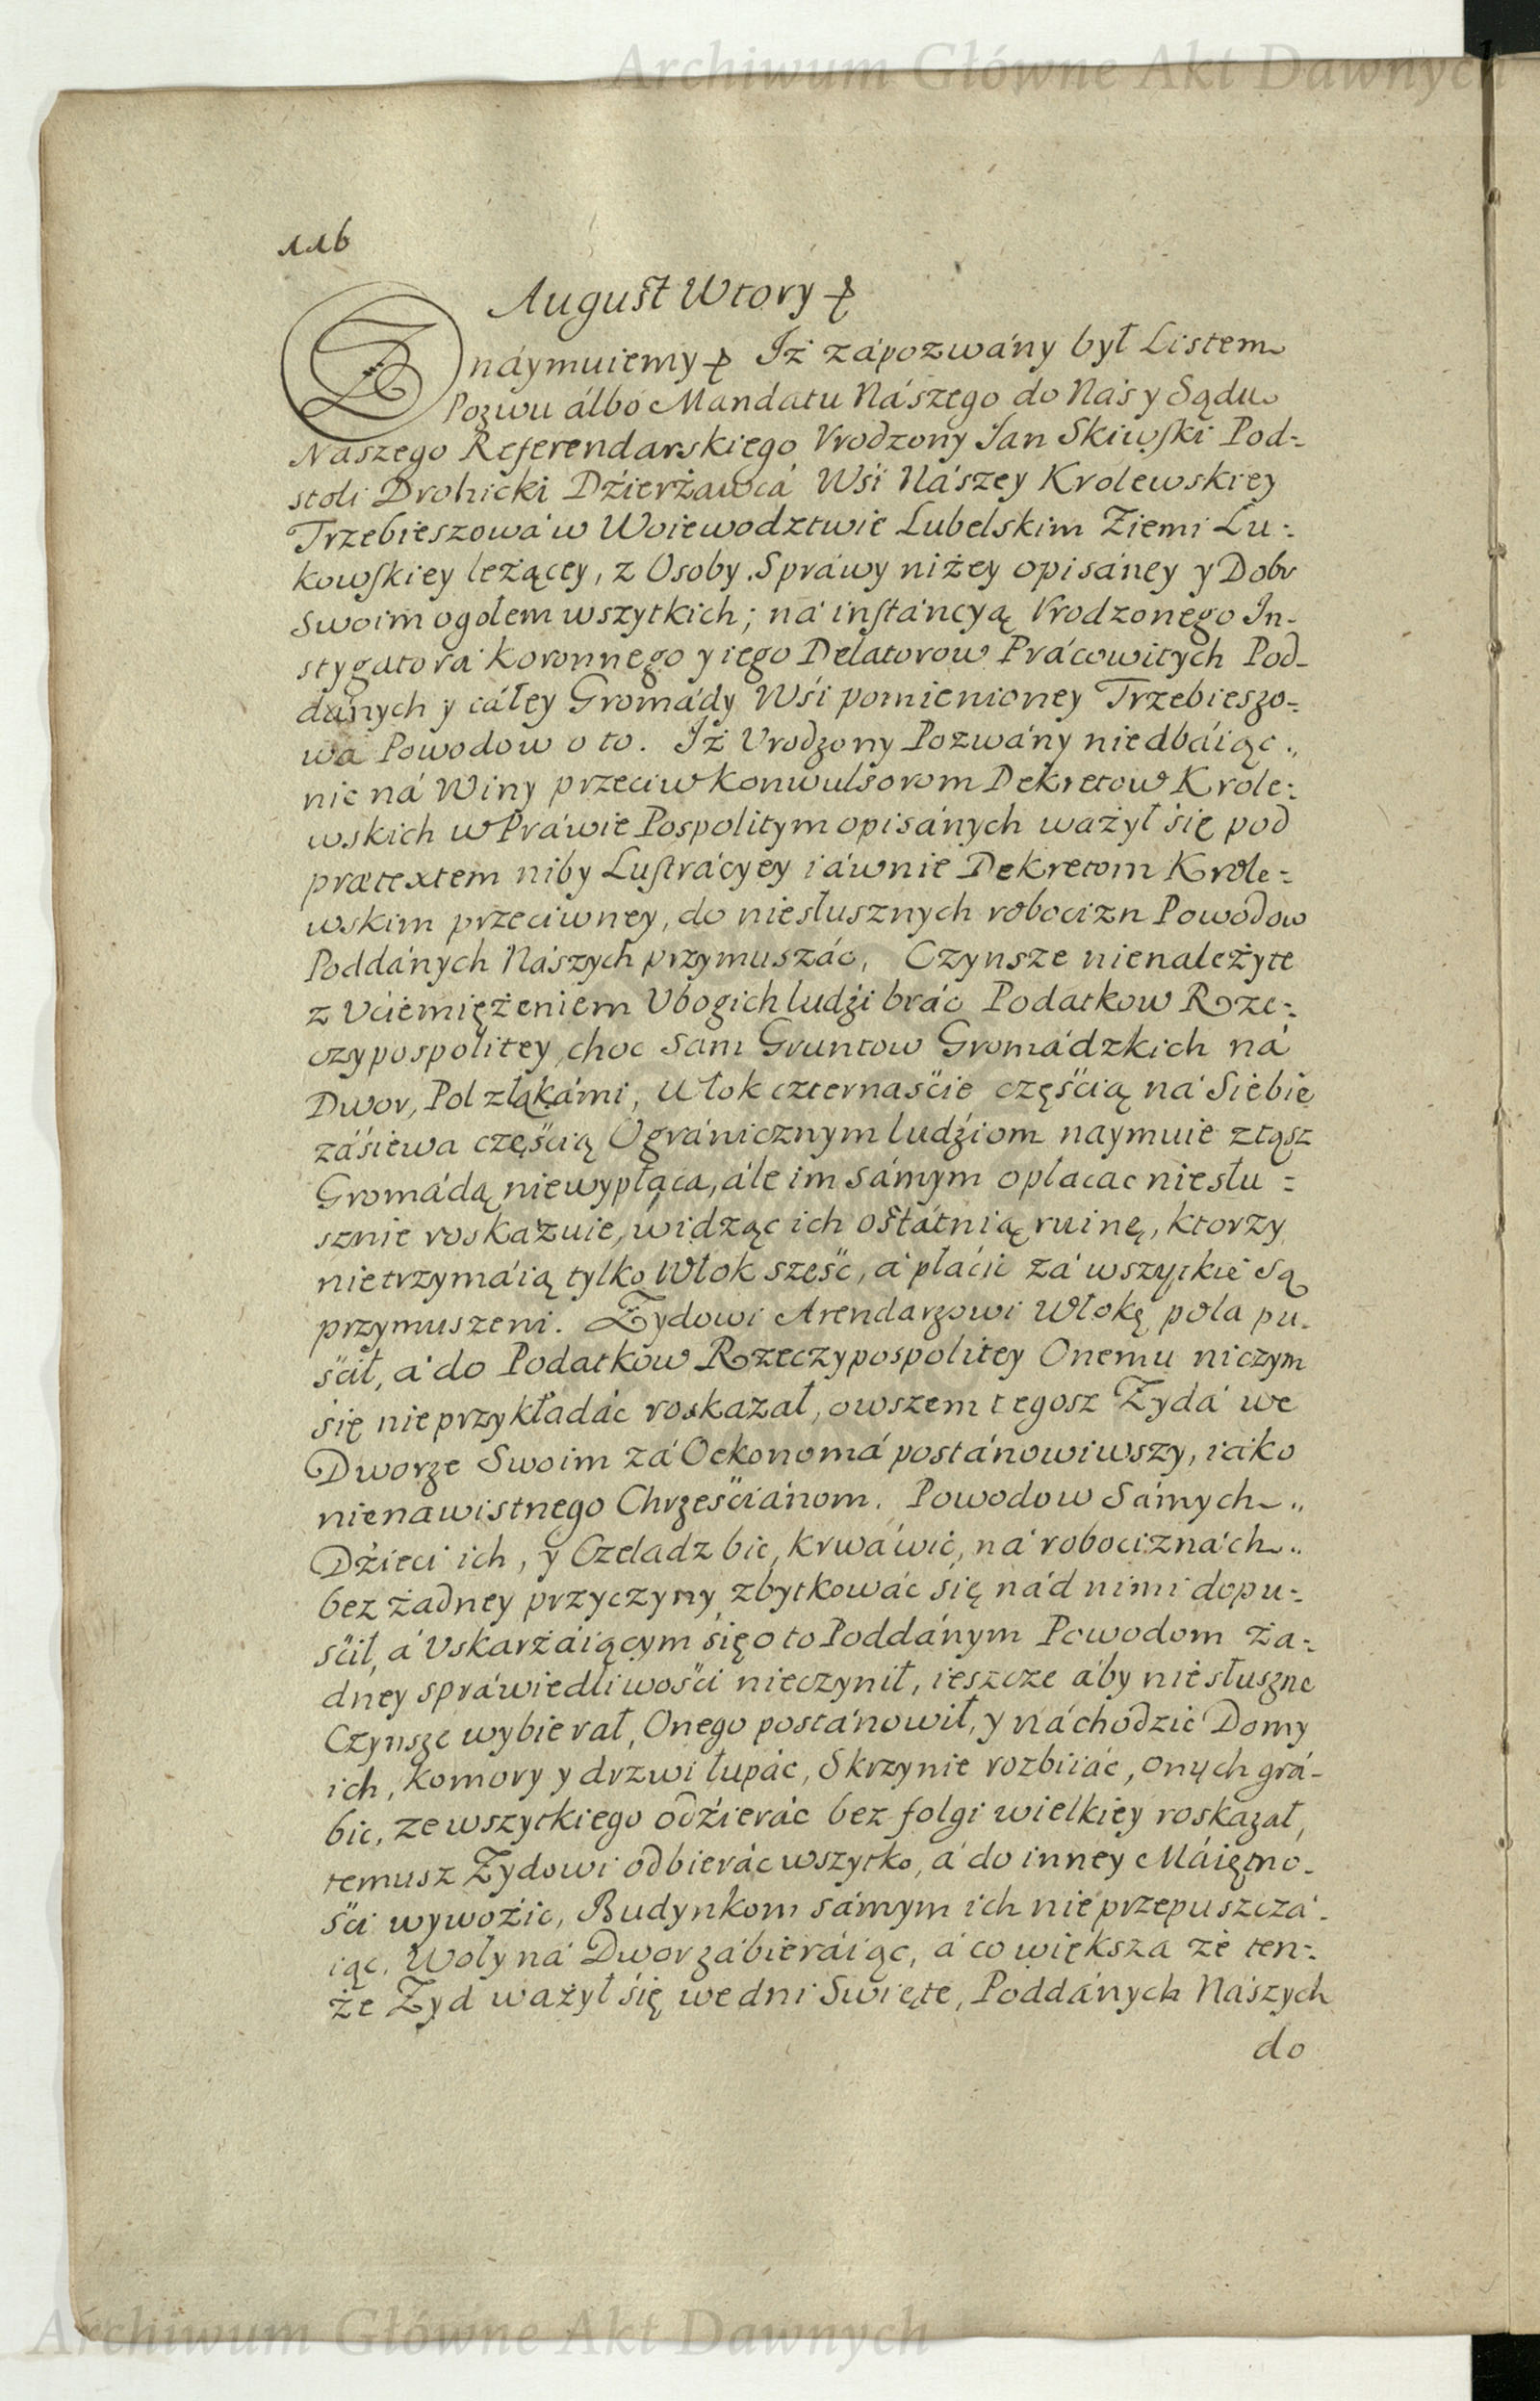 Archiwum Główne Akt Dawnych
116
August Wtory
Znáymuiemy Iż zápozwány był Listem
Pozwu álbo Mandatu Nászego do Nas y Sądu
Naszego Referendarskiego Vrodzony Jan Skiwski Pod-
stoli Drohicki Dźierżawcá Wśi Nászey Krolewskiey
Trzebieszowá w Woiewodztwie Lubelskim Ziemi Lu-
kowskiey leżącey, z Osoby Spráwy niżey opisáney y Dobr
Swoim ogolem wszytkich; ná instáncyą Vrodzonego In-
stygatorá Koronnego y iego Delatorow Prácowitych Pod-
danych y cáłey Gromády Wśi pomienioney Trzebieszo-
wa Powodow o to. Iż Vrodzony Pozwány niedbáiąc
nic ná Winy przeciw Konwulsorom Dekretow Krole-
wskich w Práwie Pospolitym opisánych ważył się pod
prætextem niby Lustrácyey iáwnie Dekretom Krole-
wskim przeciwney, do niesłusznych robocizn Powodow
Poddánych Nászych przymuszáć, Czynsze nienależyte
z Vciemiężeniem Vbogich ludźi bráć Podatkow Rze-
czypospolitey choc Sam Gruntow Gromádzkich ná
Dwor, Pol złąkámi, Włok czternaście częścią ná Siebie
záśiewa częścią Ogránicznym ludźiom naymuie ztąsz
Gromádą niewypłaca, ále im sámym opłacac niesłu-
sznie roskázuie, widząc ich ostátnią ruinę, ktorzy
nietrzymáią tylko Włok sześć, á płácić zá wszytkie są
przymuszeni. Zydowi Arendarzowi Włokę pola pu-
ścił, á do Podatkow Rzeczypospolitey Onemu niczym
się nie przykłádáć roskazał, owszem tegosz Zydá we
Dworze Swoim zá Oekonomá postánowiwszy, iáko
nienawistnego Chrześciánom. Powodow Sámych
Dźieci ich, y Czeladz bic, krwáwić, ná robociznách
bez żadney przyczyny zbytkowáć się nád nimi dopu-
ścił, á Vskarżáiącym się o to Poddánym Powodom ża-
dney spráwiedliwości nieczynił, ieszcze áby niesłuszne
Czynsze wybierał, Onego postánowił, y náchodzić Domy
ich, Komory y drzwi łupáć, Skrzynie rozbiiác, onych grá-
bić, ze wszytkiego odźieráć bez folgi wielkiey roskazał,
temusz Zydowi odbieráć wszytko, á do inney Máiętno-
ści wywozić, Budynkom sámym ich nie przepuszczá-
iąc. Woły ná Dwor zábieráiąc, á co większa że ten-
że Zyd ważył się we dni Swięte, Poddánych Nászych
do
Archiwum Główne Akt Dawnych